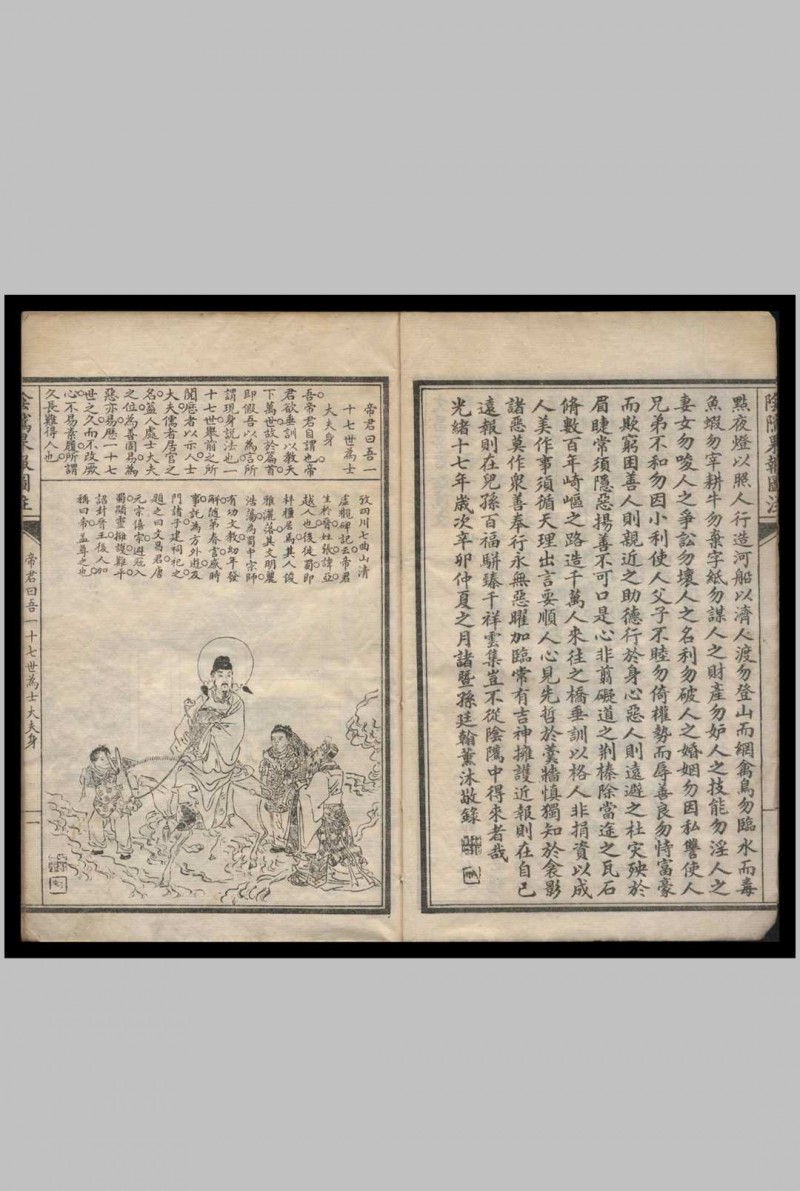 陰隲果報圖注
點夜燈以照人行造河船以濟人渡勿登山而網禽鳥勿臨水而毒
魚蝦勿宰耕牛勿棄字紙勿謀人之財產勿妒人之技能勿淫人之
妻女勿唆人之爭訟勿壞人之名利勿破人之婚姻勿因私讐使人
兄弟不和勿因小利使人父子不睦勿倚權勢而辱善良勿恃富豪
而欺窮困善人則親近之助德行於身心惡人則遠避之杜災殃於
眉睫常須隱惡揚善不可口是心非翦礙道之荆榛除當途之瓦石
脩數百年崎嶇之路造千萬人來往之橋垂訓以格人非捐資以成
人美作事須循天理出言要順人心見先哲於羹牆慎獨知於衾影
諸惡莫作衆善奉行永無惡曜加臨常有吉神擁護近報則在自己
遠報則在兒孫百福駢臻千祥雲集豈不從陰隲中得來者哉
光緒十七年歲次辛卯仲夏之月諸暨孫廷翰薰沐敬錄
帝君曰吾一
十七世為士
大夫身
吾帝君自謂也帝
君欲垂訓以教天
下萬世故於篇首
即假吾以為言所
謂現身說法也一
十七世舉前之所
閱歷者以示人士
大夫儒者居官之
名蓋人處士大夫
之位為善固易為
惡亦易歷一十七
世之久而不改厥
心不易素履所謂
久長難得人也
攷四川七曲山清
虛觀碑記云帝君
生於晉姓張諱亞
越人也後徙蜀即
梓橦居焉其人俊
雅灑落其文明麗
浩蕩為蜀中宗師
有功文教幼年發
解隨第春官感時
事託為方外遊及
門諸子建祠祀之
題之曰文昌君唐
元宗僖宗避寇入
蜀顯靈擁護難斗
詔封晉王後人加
稱曰帝益尊之也
陰隲果報圖註
帝君曰吾一十七世為士大夫身
一